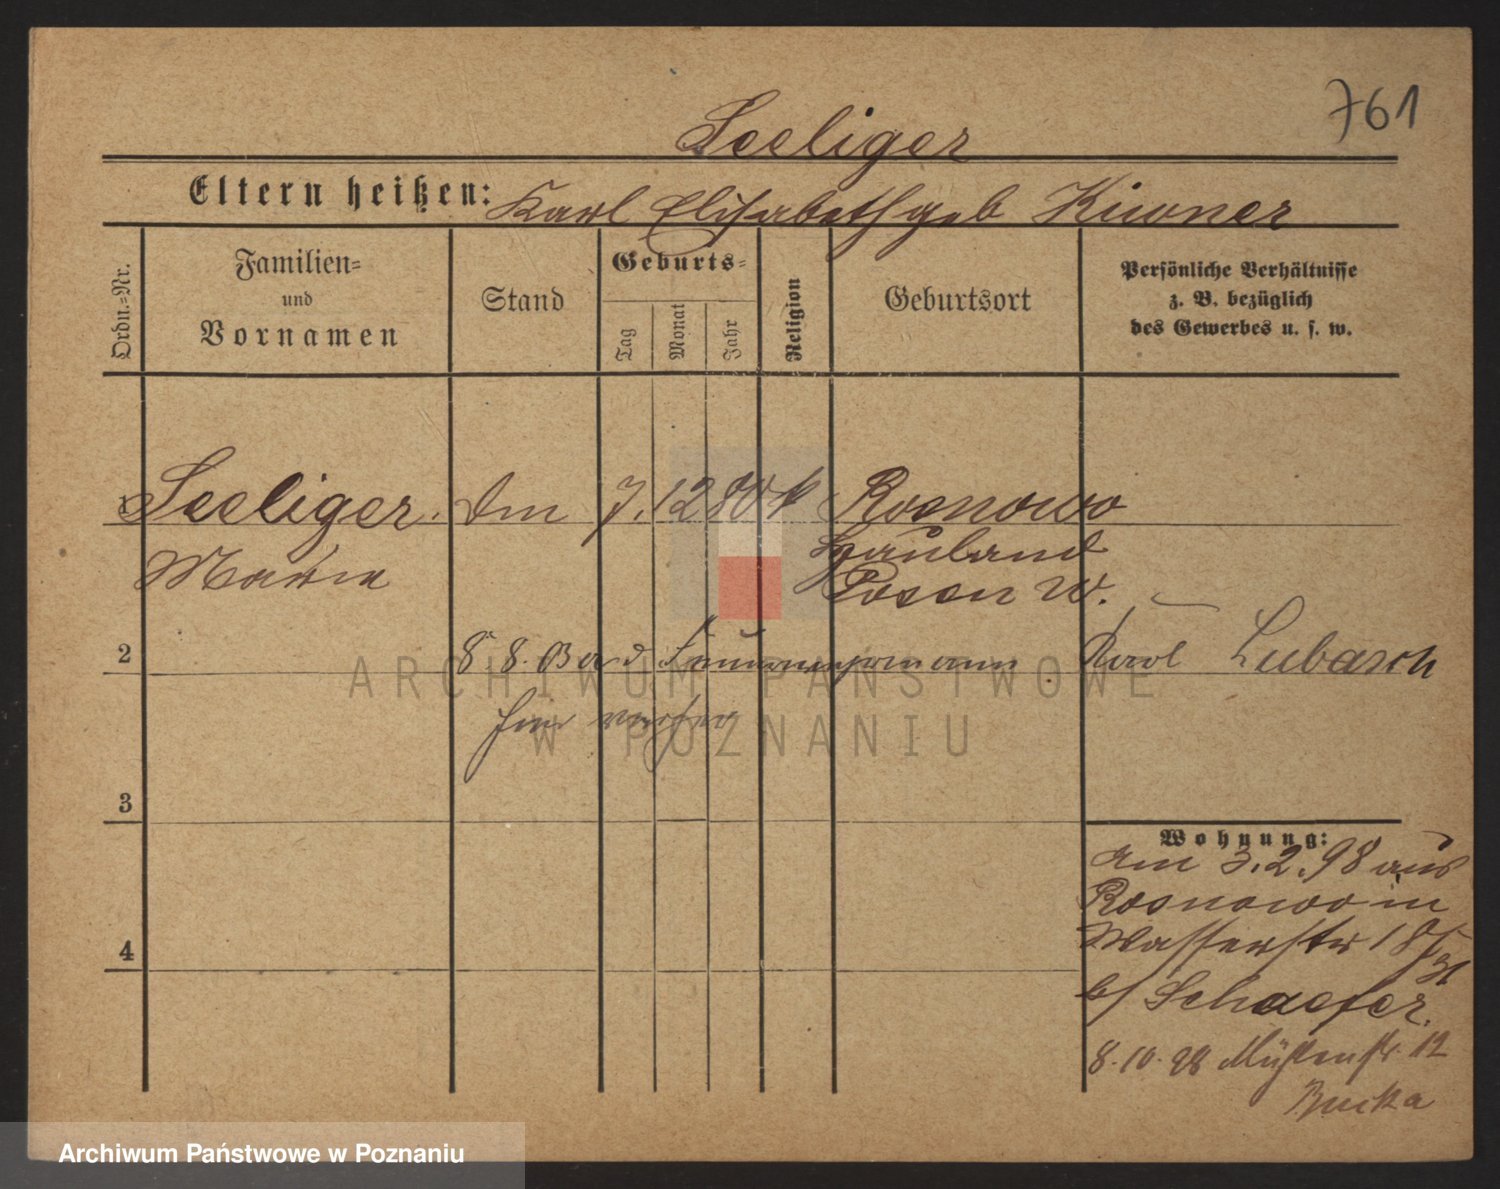 761
Seeliger
Eltern heißen: Karl Elisabeth geb
Ordn.-Nr.
Familien-
und
Vornamen
Stand
Geburts-
Tag
Monat
Jahr
Religion
Geburtsort
Persönliche Verhältnisse
z. B. bezüglich
des Gewerbes u. s. w.
1 Seeliger. 7. 12 80 k Rosnowo
Hauland
Marie
Posen W.
2
8 8. Karl Lubasch
3
4
Wohnung:
am 3.2.98 aus
Rosnowo in
Wasserstr 18
b/ Schaefer.
8.10.98 12
ARCHIWUM PAŃSTWOWE
W POZNANIU
Archiwum Państwowe w Poznaniu